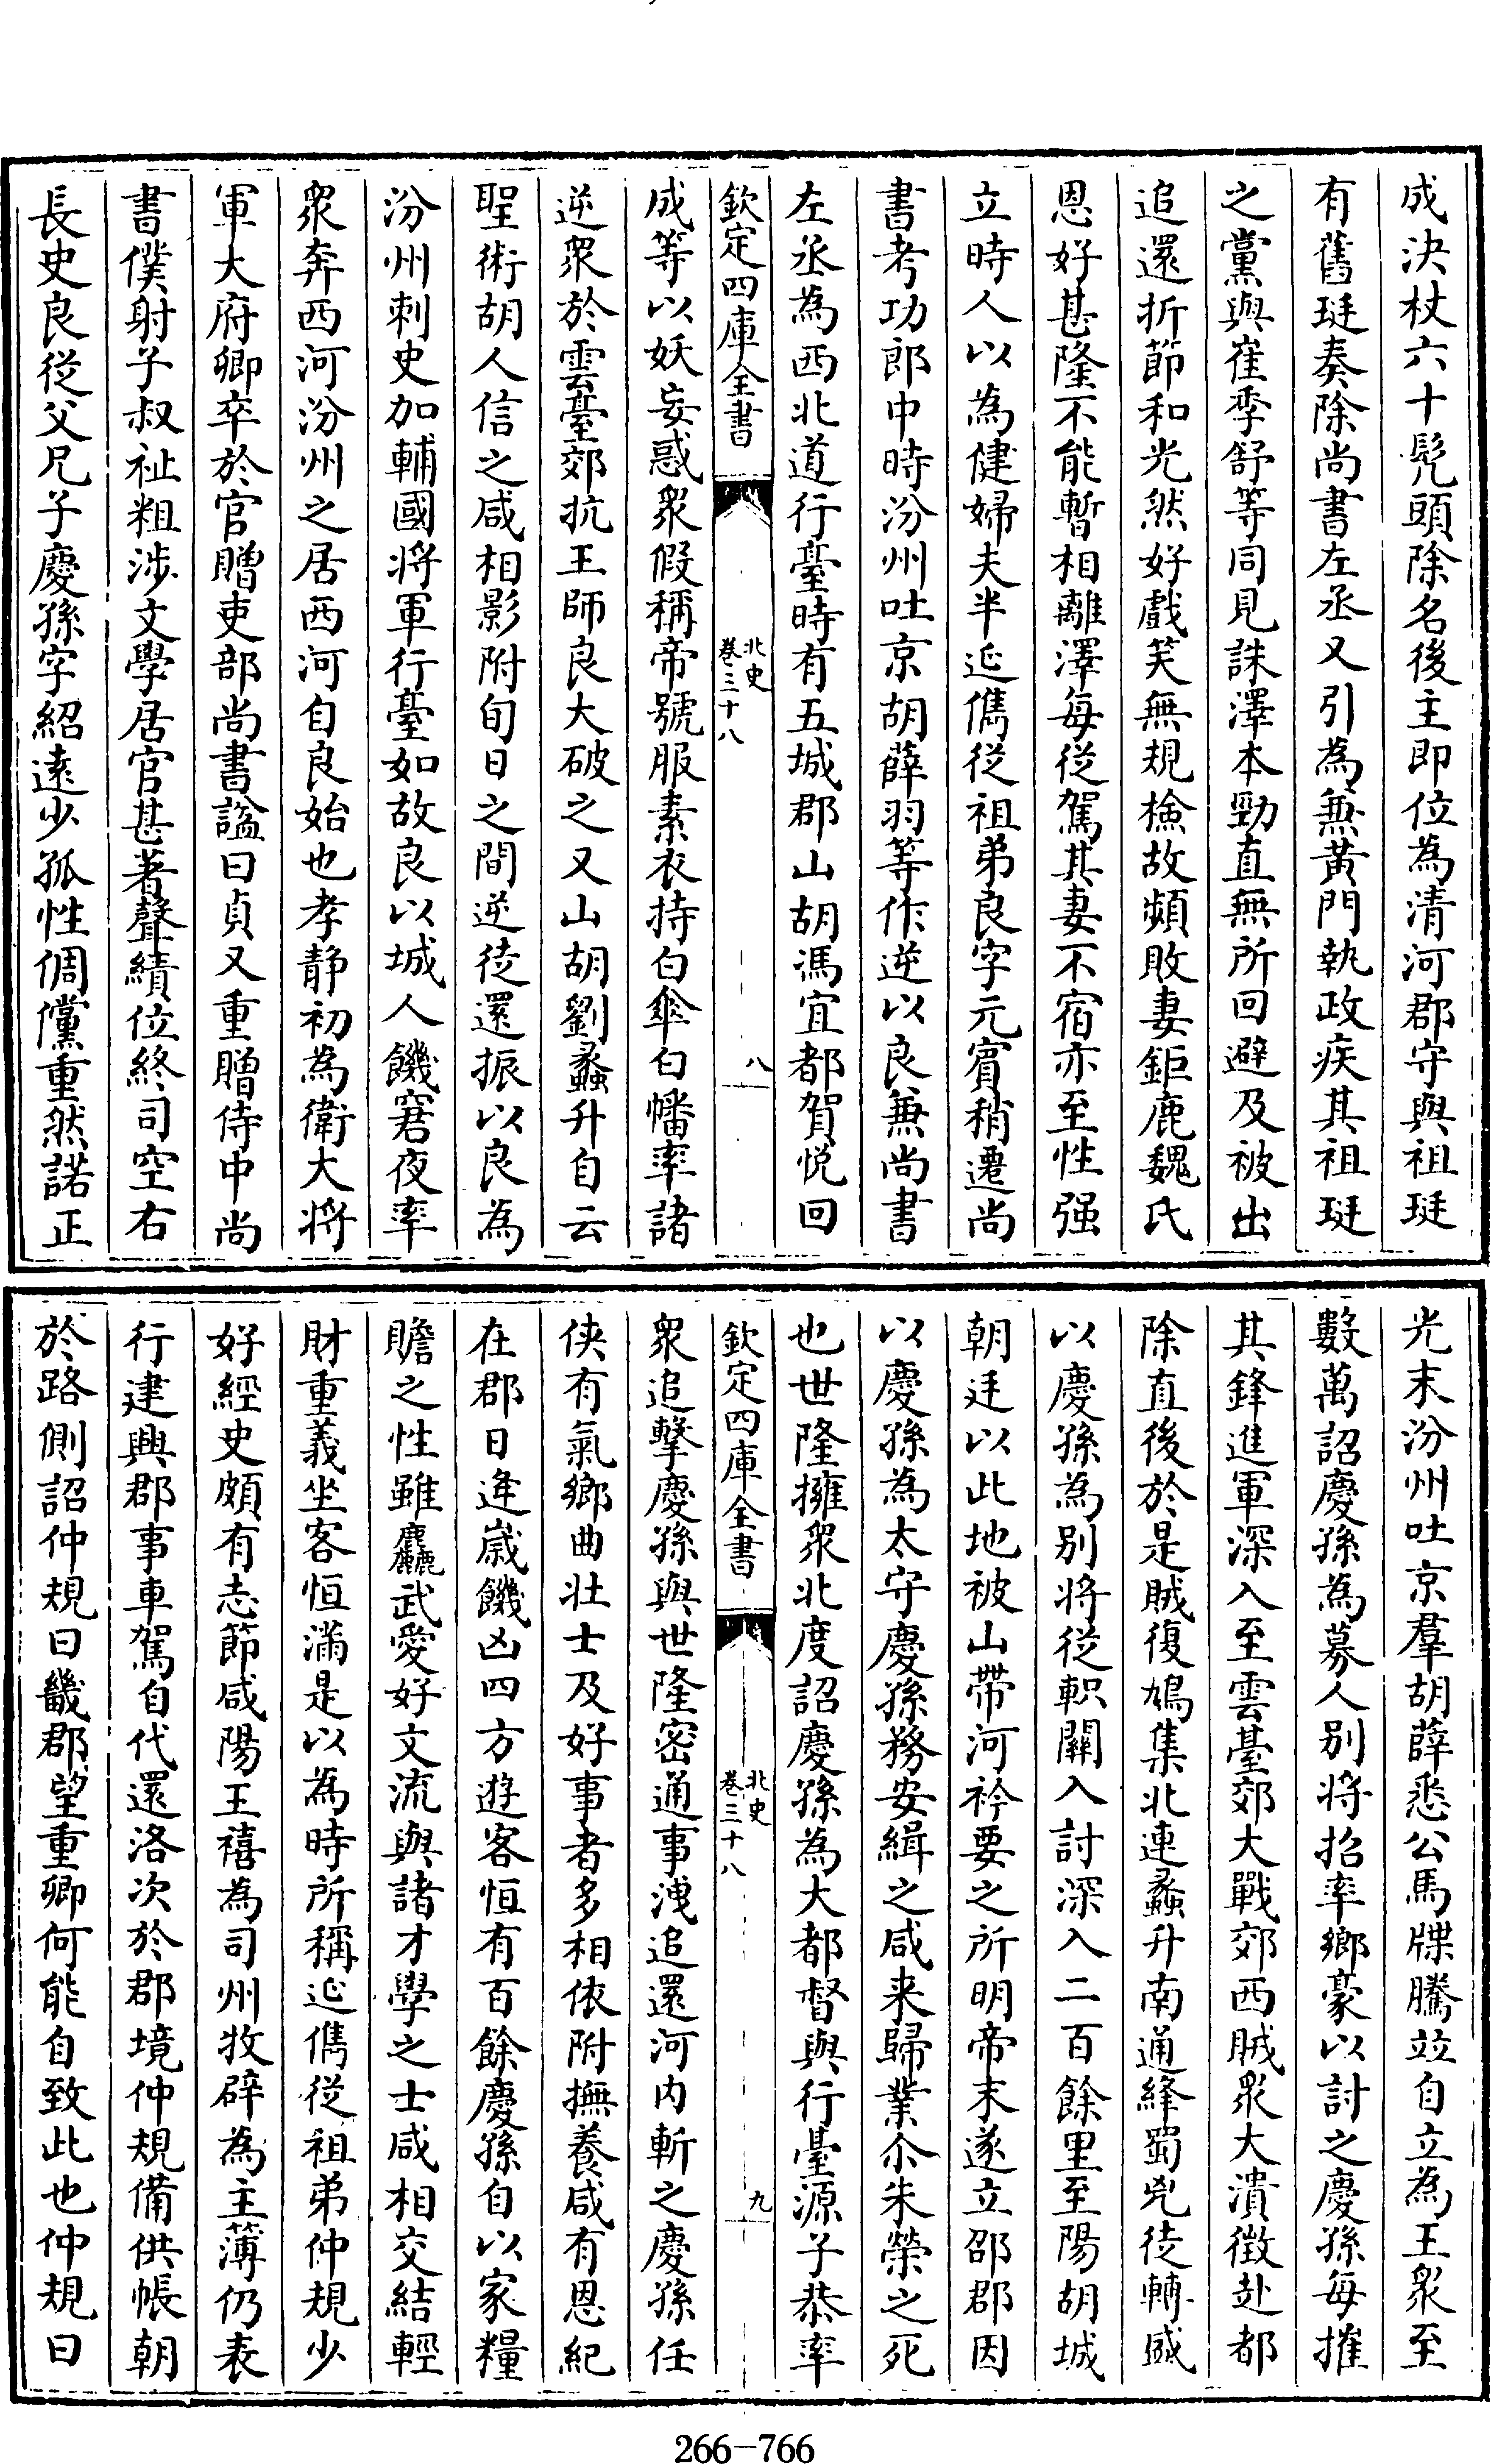 成決杖六十髠頭除名後主即位為清河郡守與祖珽
有舊珽奏除尚書左丞又引為兼黃門執政疾其祖珽
之黨與崔季舒等同見誅澤本勁直無所回避及被出
追還折節和光然好戲笑無規檢故頻敗妻鉅鹿魏氏
恩好甚隆不能暫相離澤每從駕其妻不宿亦至性强
立時人以為健婦夫半延儁從祖弟良字元賓稍遷尚
書考功郎中時汾州吐京胡薛羽等作逆以良兼尚書
左丞為西北道行臺時有五城郡山胡馮宜都賀悦回
欽定四庫全書
北史
卷三十八
八
成等以妖妄惑衆假稱帝號服素衣持白傘白幡率諸
逆衆於雲臺郊抗王師良大破之又山胡劉蠡升自云
聖術胡人信之咸相影附旬日之間逆徒還振以良為
汾州刺史加輔國將軍行臺如故良以城人饑窘夜率
衆奔西河汾州之居西河自良始也孝静初為衛大將
軍大府卿卒於官贈吏部尚書謚曰貞又重贈侍中尚
書僕射子叔祉粗涉文學居官甚著聲績位終司空右
長史良從父兄子慶孫字紹遠少孤性倜儻重然諾正
光末汾州吐京羣胡薛悉公馬牒騰竝自立為王衆至
數萬詔慶孫為募人别將招率鄉豪以討之慶孫每摧
其鋒進軍深入至雲臺郊大戰郊西賊衆大潰徴赴都
除直後於是賊復鳩集北連蠡升南通絳蜀兇徒轉盛
以慶孫為别將從軹關入討深入二百餘里至陽胡城
朝廷以此地被山帶河衿要之所明帝末遂立邵郡因
以慶孫為太守慶孫務安緝之咸来歸業尒朱榮之死
也世隆擁衆北度詔慶孫為大都督與行臺源子恭率
欽定四庫全書
北史
卷三十八
九
衆追擊慶孫與世隆密通事洩追還河内斬之慶孫任
侠有氣鄉曲壮士及好事者多相依附撫養咸有恩紀
在郡日逢歲饑凶四方遊客恒有百餘慶孫自以家糧
贍之性雖麤武愛好文流與諸才學之士咸相交結輕
財重義坐客恒滿是以為時所稱延儁從祖弟仲規少
好經史頗有志節咸陽王禧為司州牧辟為主簿仍表
行建興郡事車駕自代還洛次於郡境仲規備供帳朝
於路側詔仲規曰畿郡望重卿何能自致此也仲規曰
266-766